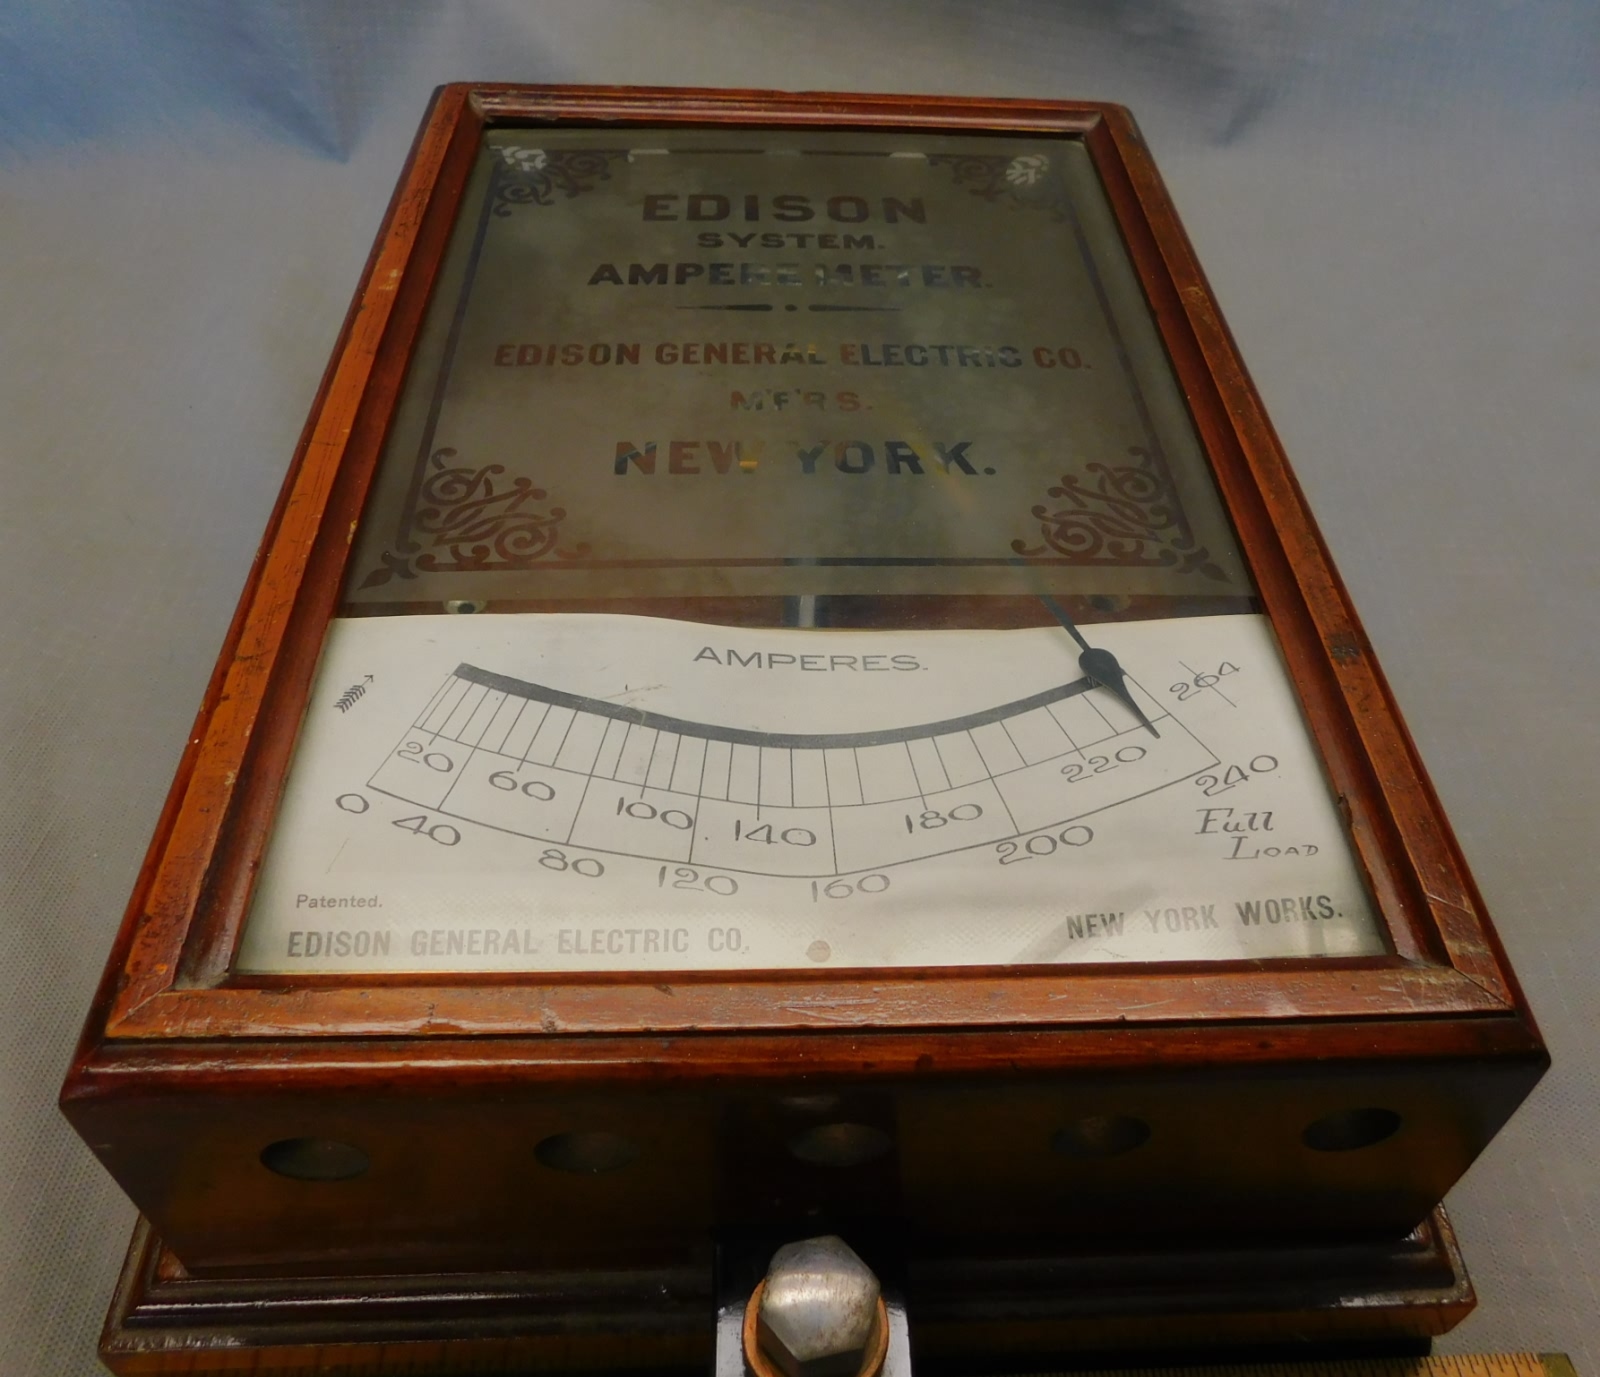 EDISON
SYSTEM.
AMPERE METER.
EDISON GENERAL ELECTRIC CO.
M'F'RS.
NEW YORK.
AMPERES.
264
0 20 40 60 80 100 120 140 160 180 200 220 240
Full
Load
Patented.
EDISON GENERAL ELECTRIC CO.
NEW YORK WORKS.